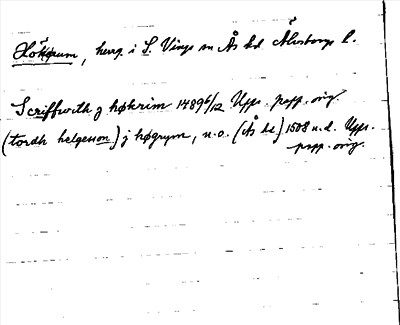 Hökrum, herrg. i S. Vings sn Ås hd Älvsborgs l.
Scriffwith z høkrim 1489 6/12 Upps. papp. orig.
(tordh helgesson) j høgrym, n.o. (Ås hd.) 1508 u.d. Upps.
papp. orig.